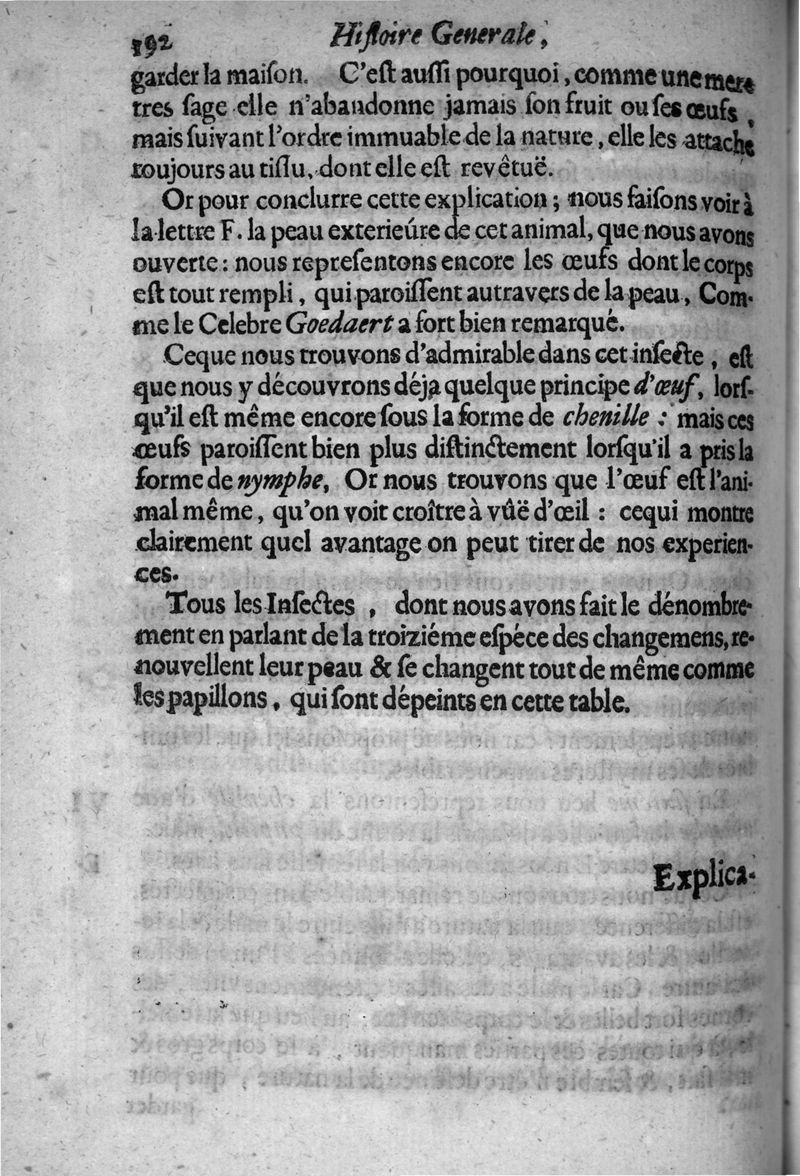 192 Hiſtoire Generale,
garder la maiſon. C'eſt auſſi pourquoi, comme une mere
tres ſage elle n'abandonne jamais ſon fruit ou ſes œufs,
mais ſuivant l'ordre immuable de la nature, elle les attache
toujours au tiſſu, dont elle eſt revêtuë.
Or pour conclurre cette explication; nous faiſons voir à
la lettre F. la peau exterieúre de cet animal, que nous avons
ouverte: nous repreſentons encore les œufs dont le corps
eſt tout rempli, qui paroiſſent autravers de la peau, Com-
me le Celebre Goedaert a fort bien remarqué.
Ceque nous trouvons d'admirable dans cet inſecte, eſt
que nous y découvrons déja quelque principe d'œuf, lorſ-
qu'il eſt même encore ſous la forme de chenille: mais ces
œufs paroiſſent bien plus diſtinctement lorſqu'il a pris la
forme de nymphe, Or nous trouvons que l'œuf eſt l'ani-
mal même, qu'on voit croître à vûë d'œil: cequi montre
clairement quel avantage on peut tirer de nos experien-
ces.
Tous les Inſectes, dont nous avons fait le dénombre-
ment en parlant de la troiziéme eſpéce des changemens, re-
nouvellent leur peau & ſe changent tout de même comme
les papillons, qui ſont dépeints en cette table.
Explica-